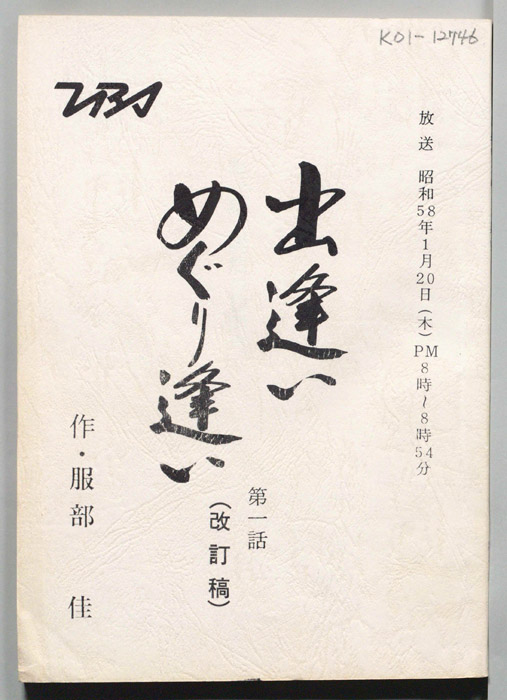 K01-12746
TBS
放送 昭和58年1月20日(木)PM8時~8時54分
出逢い
めぐり逢い
第一話
(改訂稿)
作・服部 佳